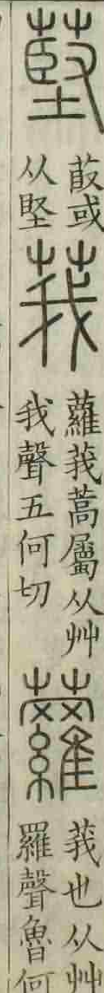 菣或
从堅
莪
蘿莪蒿屬从艸
我聲五何切
蘿
莪也从艸
羅聲魯何